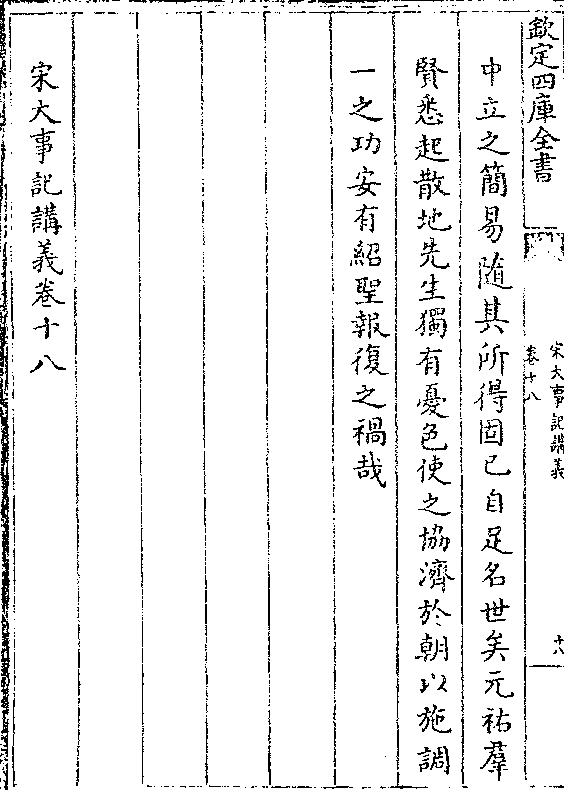 欽定四庫全書
宋大事記講義
卷十八
十八
中立之簡易隨其所得固已自足名世矣元祐羣
賢悉起散地先生獨有憂色使之協濟於朝以施調
一之功安有紹聖報復之禍哉
宋大事記講義卷十八